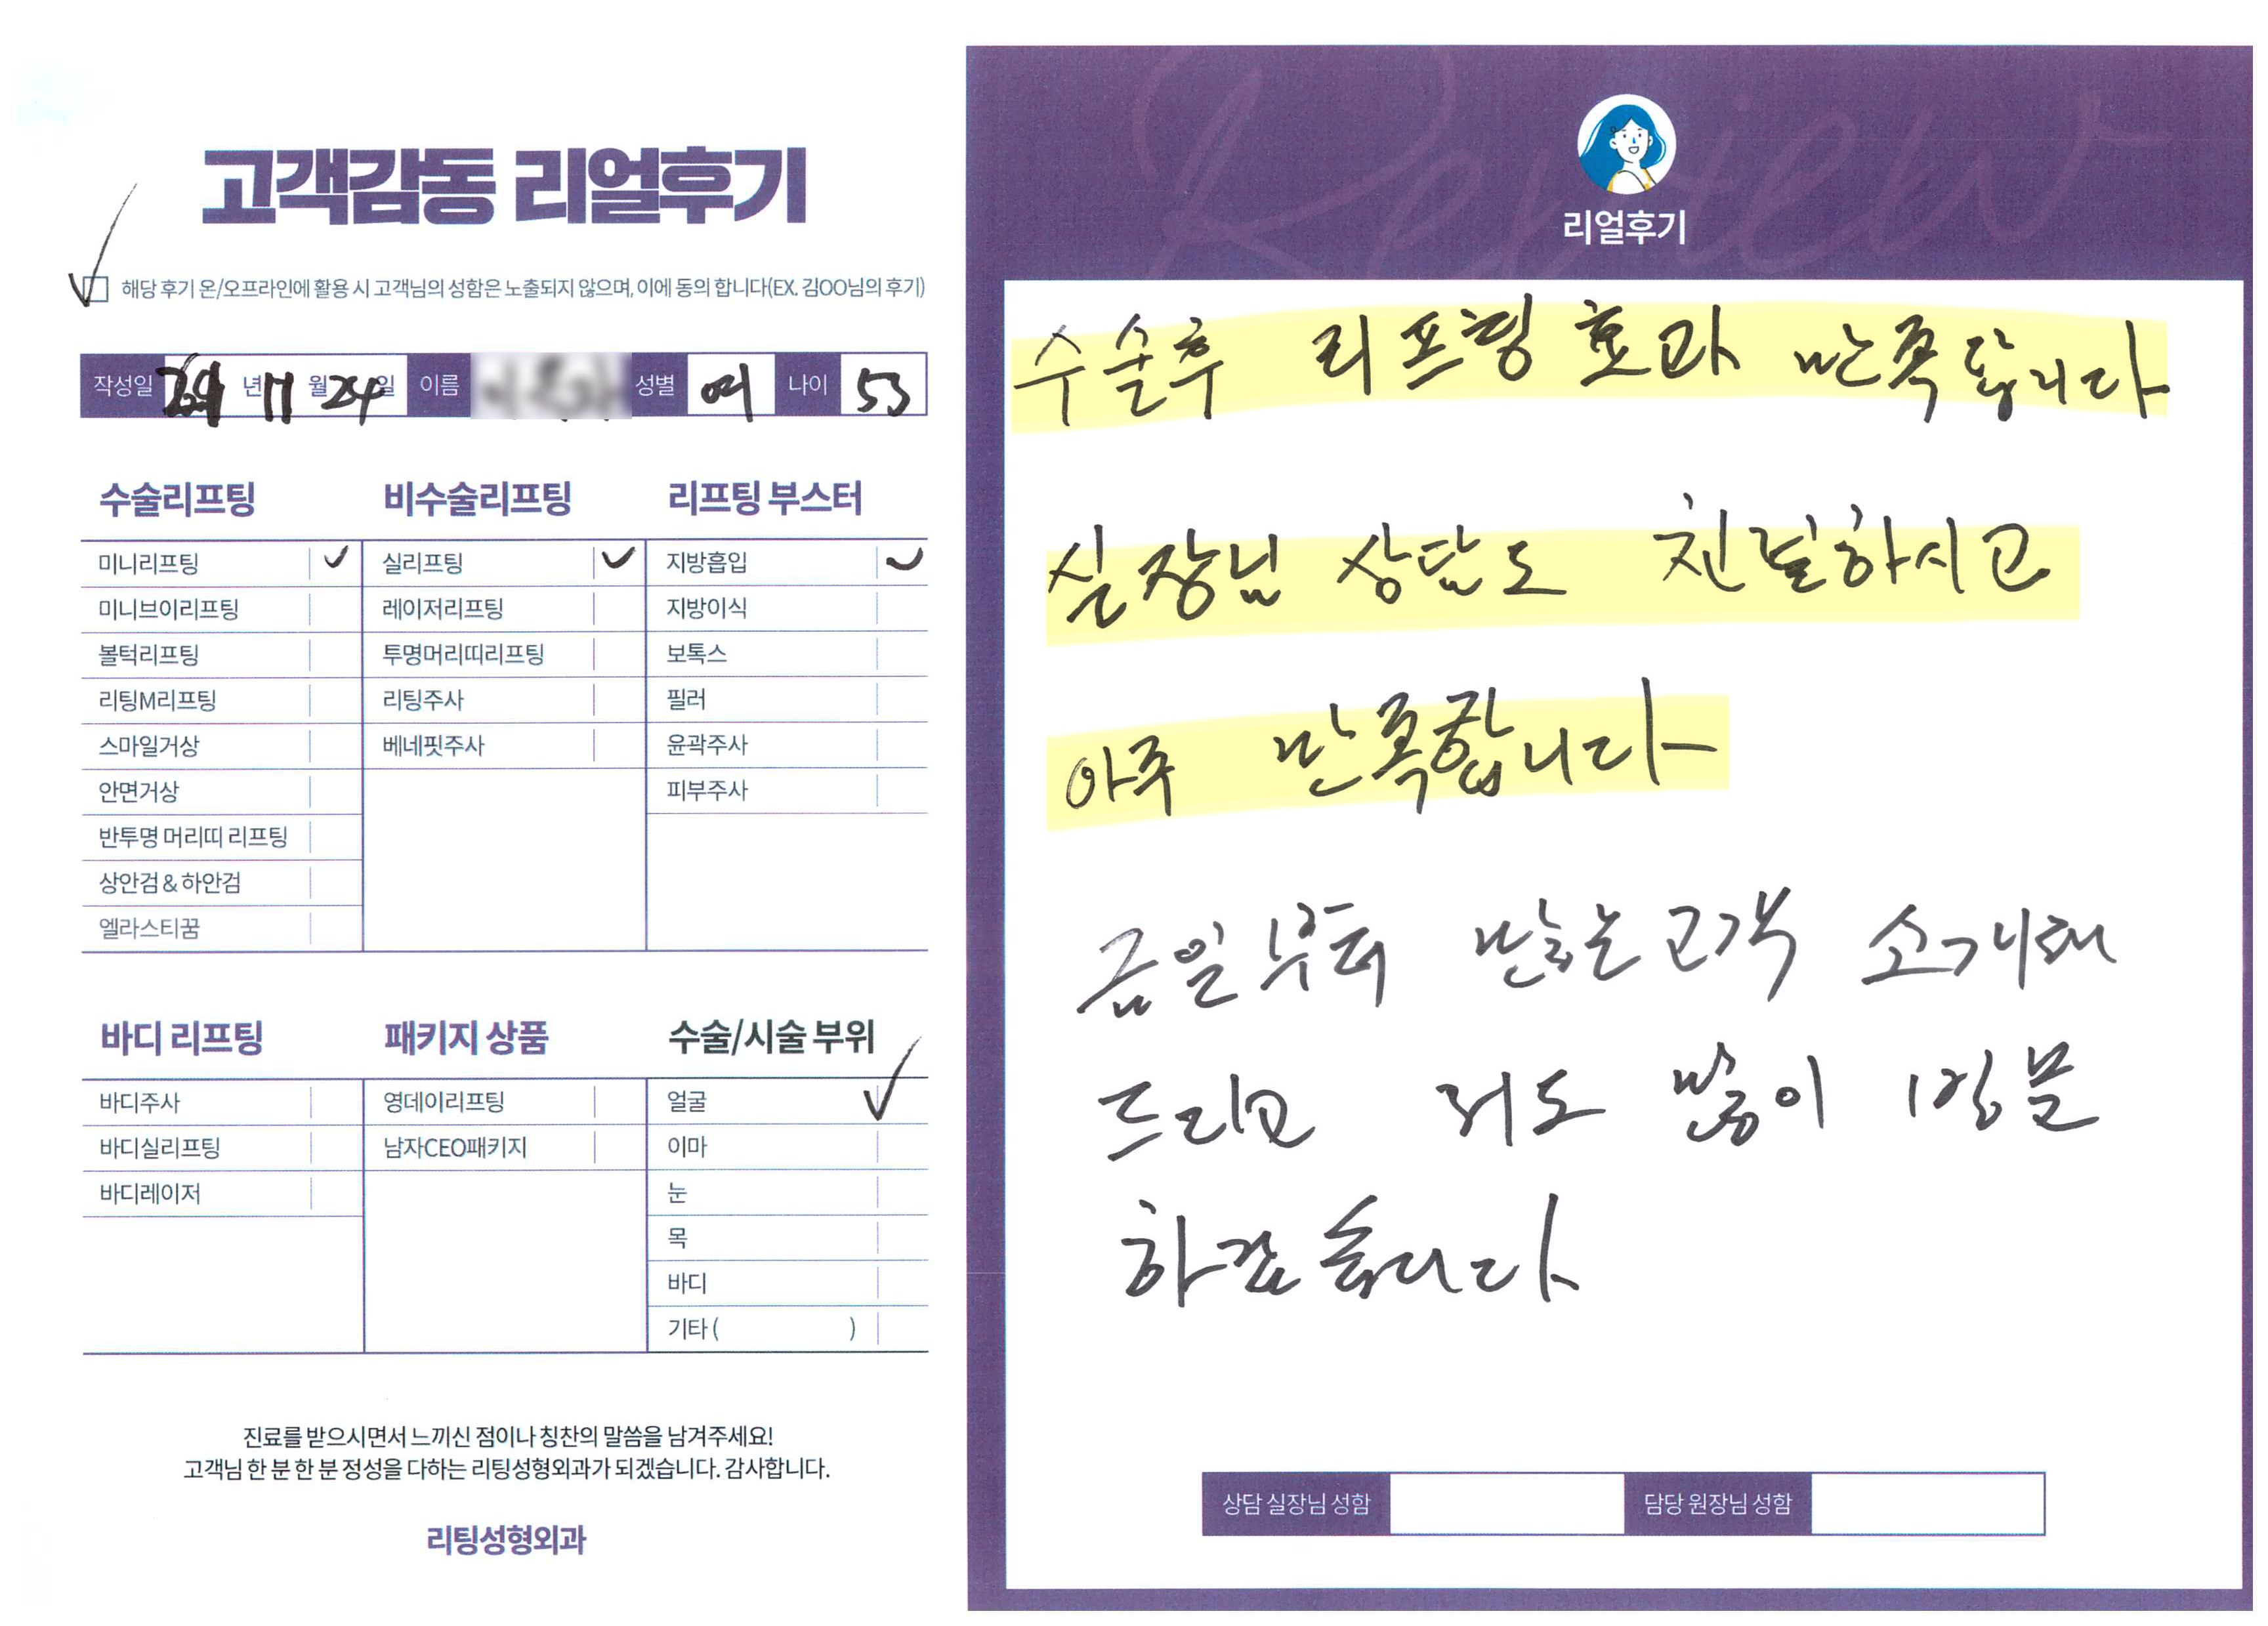 고객감동 리얼후기
해당 후기 온/오프라인에 활용 시 고객님의 성함은 노출되지 않으며, 이에 동의 합니다(EX. 김OO님의 후기)
작성일 년 11 월 24 일 이름 성별 여 나이 53
수술리프팅
미니리프팅
미니브이리프팅
볼턱리프팅
리팅M리프팅
스마일거상
안면거상
반투명 머리띠 리프팅
상안검 & 하안검
엘라스티꿈
비수술리프팅
실리프팅
레이저리프팅
투명머리띠리프팅
리팅주사
베네핏주사
리프팅 부스터
지방흡입
지방이식
보톡스
필러
윤곽주사
피부주사
바디 리프팅
바디주사
바디실리프팅
바디레이저
패키지 상품
영데이리프팅
남자CEO패키지
수술/시술 부위
얼굴
이마
눈
목
바디
기타 ( )
진료를 받으시면서 느끼신 점이나 칭찬의 말씀을 남겨주세요!
고객님 한 분 한 분 정성을 다하는 리팅성형외과가 되겠습니다. 감사합니다.
리팅성형외과
Review
리얼후기
수술후 리프팅 효과 만족합니다
실장님 상담도 친절하시고
아주 만족합니다
금일부터 많은 고객 소개해
드리고 저도 많이 방문
하겠습니다
상담 실장님 성함
담당 원장님 성함